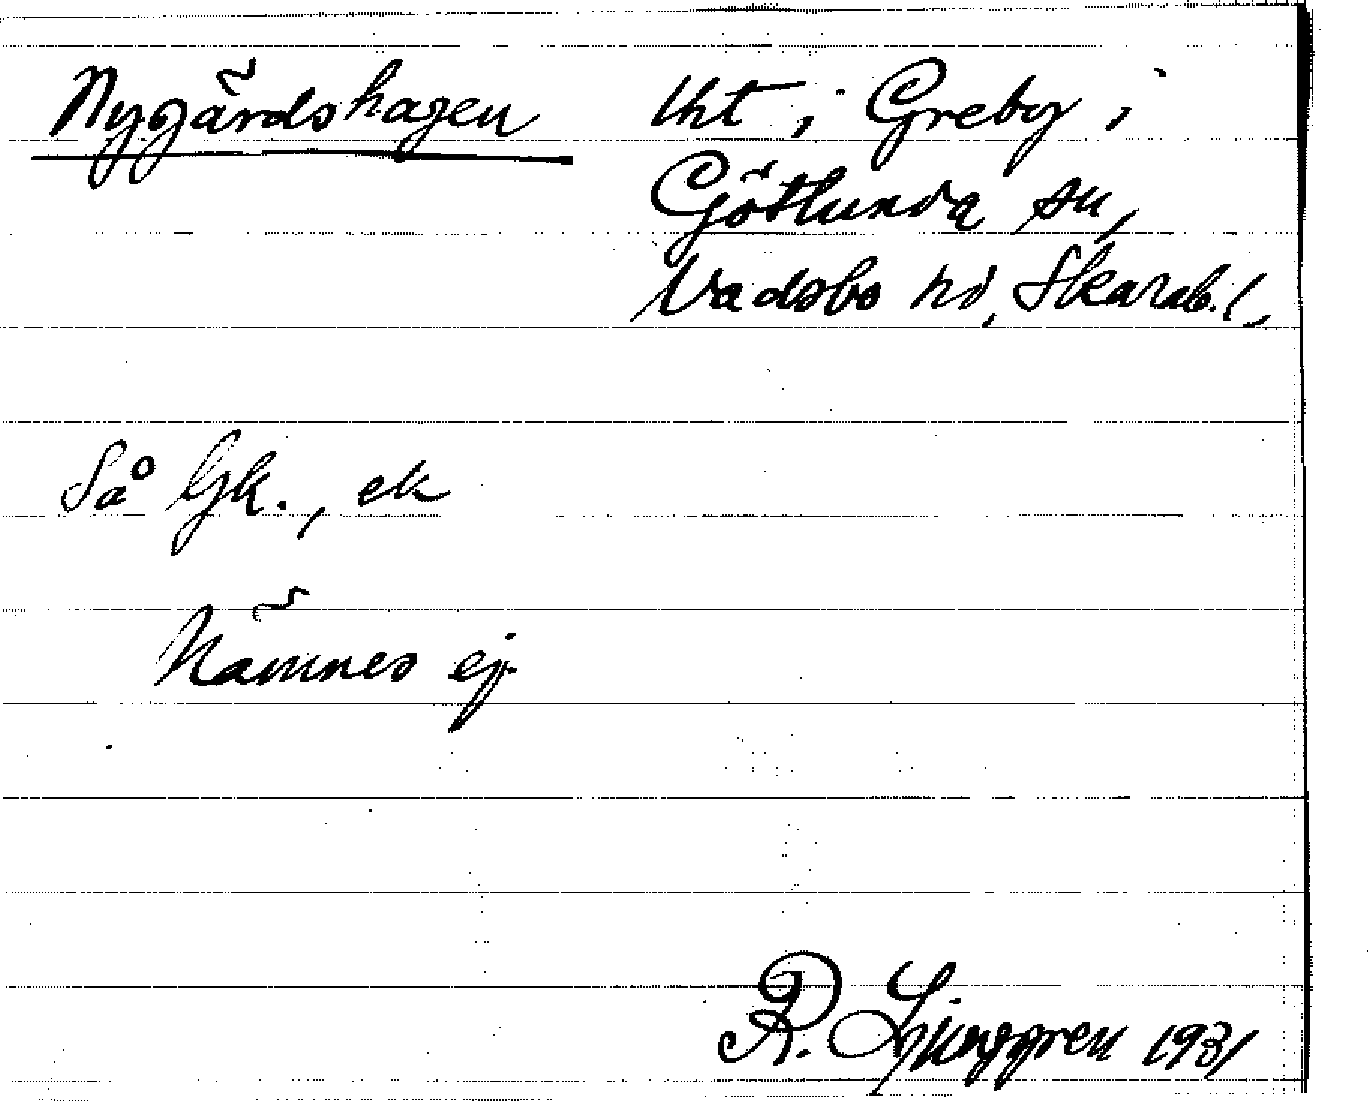 Nygårdshagen lht i Greby i
Götlunda sn,
Vadsbo hd, Skarab. l,
Så Gk., ek
Nämnes ej
R. Ljunggren 1931